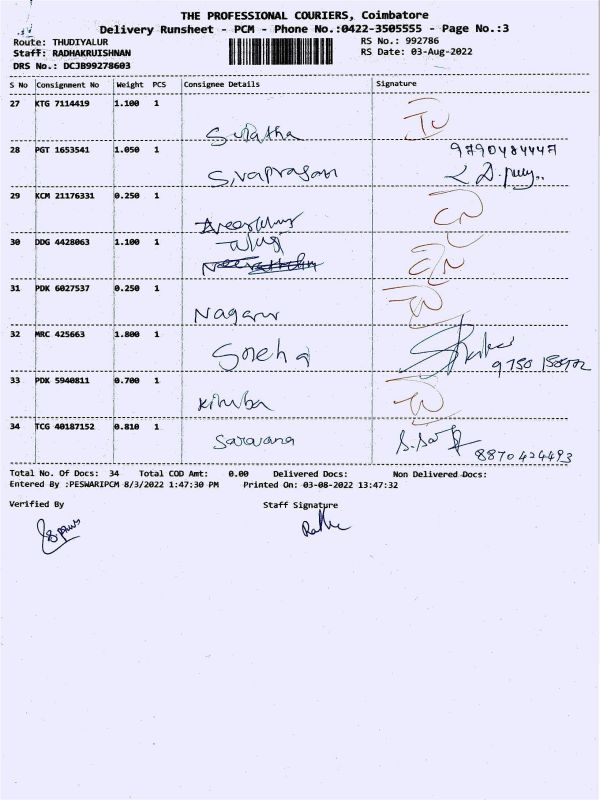 THE PROFESSIONAL COURIERS, Coimbatore
Delivery Runsheet - PCM - Phone No.:0422-3505555 - Page No.:3
Route: THUDIYALUR RS No.: 992786
Staff: RADHAKRUISHNAN RS Date: 03-Aug-2022
DRS No.: DCJB99278603
S No Consignment No Weight PCS Consignee Details Signature
27 KTG 7114419 1.100 1
Sujatha
28 PGT 1653541 1.050 1 9790484447
Sivaprasam
29 KCM 21176331 0.250 1
30 DDG 4428063 1.100 1
31 PDK 6027537 0.250 1
Nagarur
32 MRC 425663 1.800 1
Sneha
33 PDK 5940811 0.700 1
34 TCG 40187152 0.810 1
Saravana
8870424493
Total No. Of Docs: 34 Total COD Amt: 0.00 Delivered Docs: Non Delivered Docs:
Entered By :PESWARIPCM 8/3/2022 1:47:30 PM Printed On: 03-08-2022 13:47:32
Verified By Staff Signature